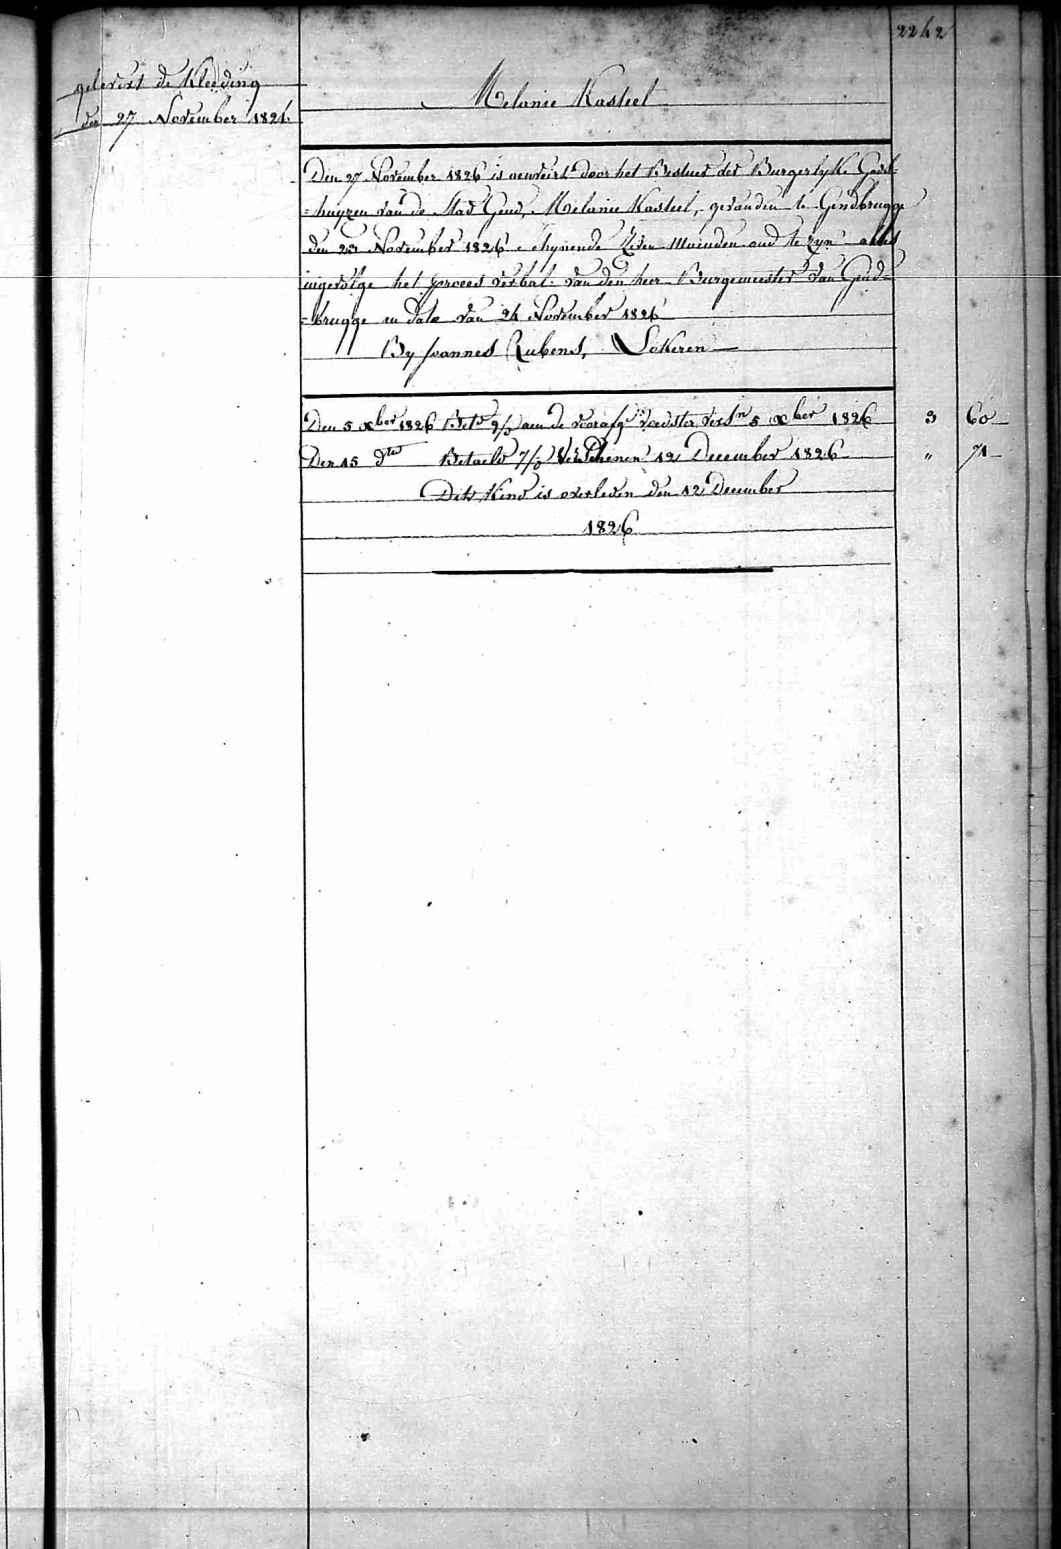 2242
gelevert de Kleeding
den 27 November 1826
Melanie Kasteel
Den 27 November 1826 is aenveirt door het Bestuer der Burgerlyke Gods=
=huyzen van de stad Gend, Melanie Kasteel, gevonden te Gendbrugge
den 23 November 1826 schynende Zeven maenden oud te zyn alles
ingevolge het proces verbal van den heer Burgemeester van Gend=
=brugge in date van 24 November 1826
By Joannes Rubens, Lokeren
Den 5 xber 1826 Betd aen de voorafge voedster 5 xber 1826 3 60
Den 15 dto Betaeld Verschenen 12 December 1826 " 71
Dito Kind is overleden den 12 December
1826